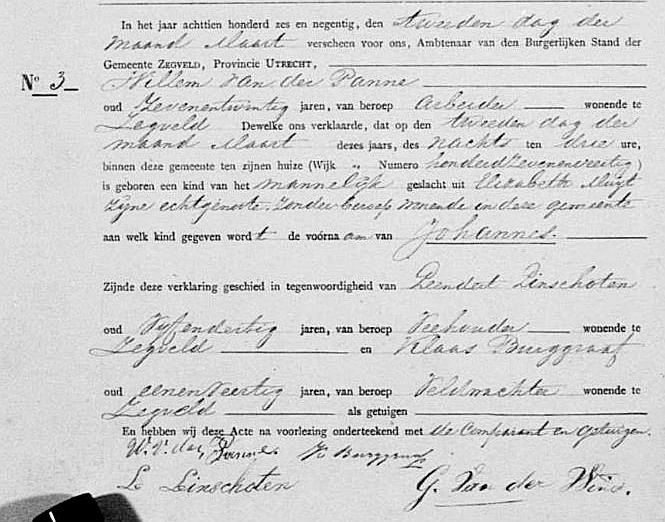 In het jaar achttien honderd zes en negentig, den tweeden dag der
maand Maart verscheen voor ons, Ambtenaar van den Burgerlijken Stand der
Gemeente ZEGVELD, Provincie UTRECHT,
No 3
Willem van der Panne
oud zevenentwintig jaren, van beroep arbeider wonende te
Zegveld Dewelke ons verklaarde, dat op den tweeden dag der
maand Maart dezes jaars, des nachts ten drie ure,
binnen deze gemeente ten zijnen huize (Wijk „ Numero honderdzevenenveertig)
is geboren een kind van het mannelijk geslacht uit Elizabeth
zijne echtgenoote, zonder beroep wonende in deze gemeente
aan welk kind gegeven wordt de voornaam van Johannes.
Zijnde deze verklaring geschied in tegenwoordigheid van Leendert Linschoten
oud vijfendertig jaren, van beroep Veehouder wonende te
Zegveld en Klaas Burggraaf
oud eenenveertig jaren, van beroep Veldwachter wonende te
Zegveld als getuigen
En hebben wij deze Acte na voorlezing onderteekend met de Comparant en getuigen.
W. v. der Panne K Burggraaf
L Linschoten G. Van der Wind.